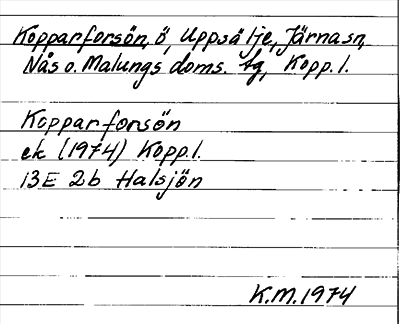 Kopparforsön, ö, Uppsälje, Järnasn,
Nås o. Malungs doms. tg, Kopp. l.
Kopparforsön
ek (1974) Kopp.l.
13E 2b Halsjön
K.M.1974